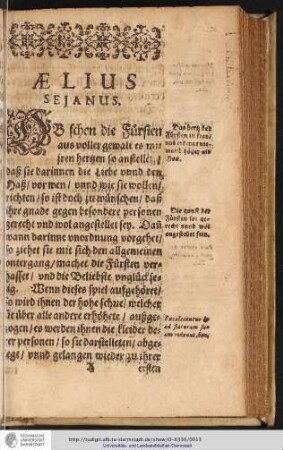 ÆLIUS
SEJANUS.
OB schon die Fürsten
aus voller gewalt es mit
jren hertzen so anstellen /
daß sie darinnen die Liebe vnnd den
Haß / vor wen / vnnd wie sie wollen /
richten / so ist doch zu wünschen / daß
ihre gnade gegen besondere personen
gerecht vnd wol angestellet sey. Dañ
wann darinne vnordnung vorgehet /
so ziehet sie mit sich den allgemeinen
vntergang / machet die Fürsten ver-
hasset / vnd die Beliebste vnglückse-
lig. Wenn dieses spiel auffgehöret /
so wird ihnen der hohe schue / welcher
sie über alle andere erhöhete / außge-
zogen / es werden ihnen die kleider de-
rer personen / so sie darstelleten / abge-
legt / vnnd gelangen wieder zu ihrer
A
ersten
Das hertz der
Fürsten ist frey /
Die gunst der
Fürsten sol ge-
recht vnnd wol
angestellet sein.
TECHNISCHE
UNIVERSITÄT
DARMSTADT
http://tudigit.ulb.tu-darmstadt.de/show/
Universitäts- und Landesbibliothek Darmstadt